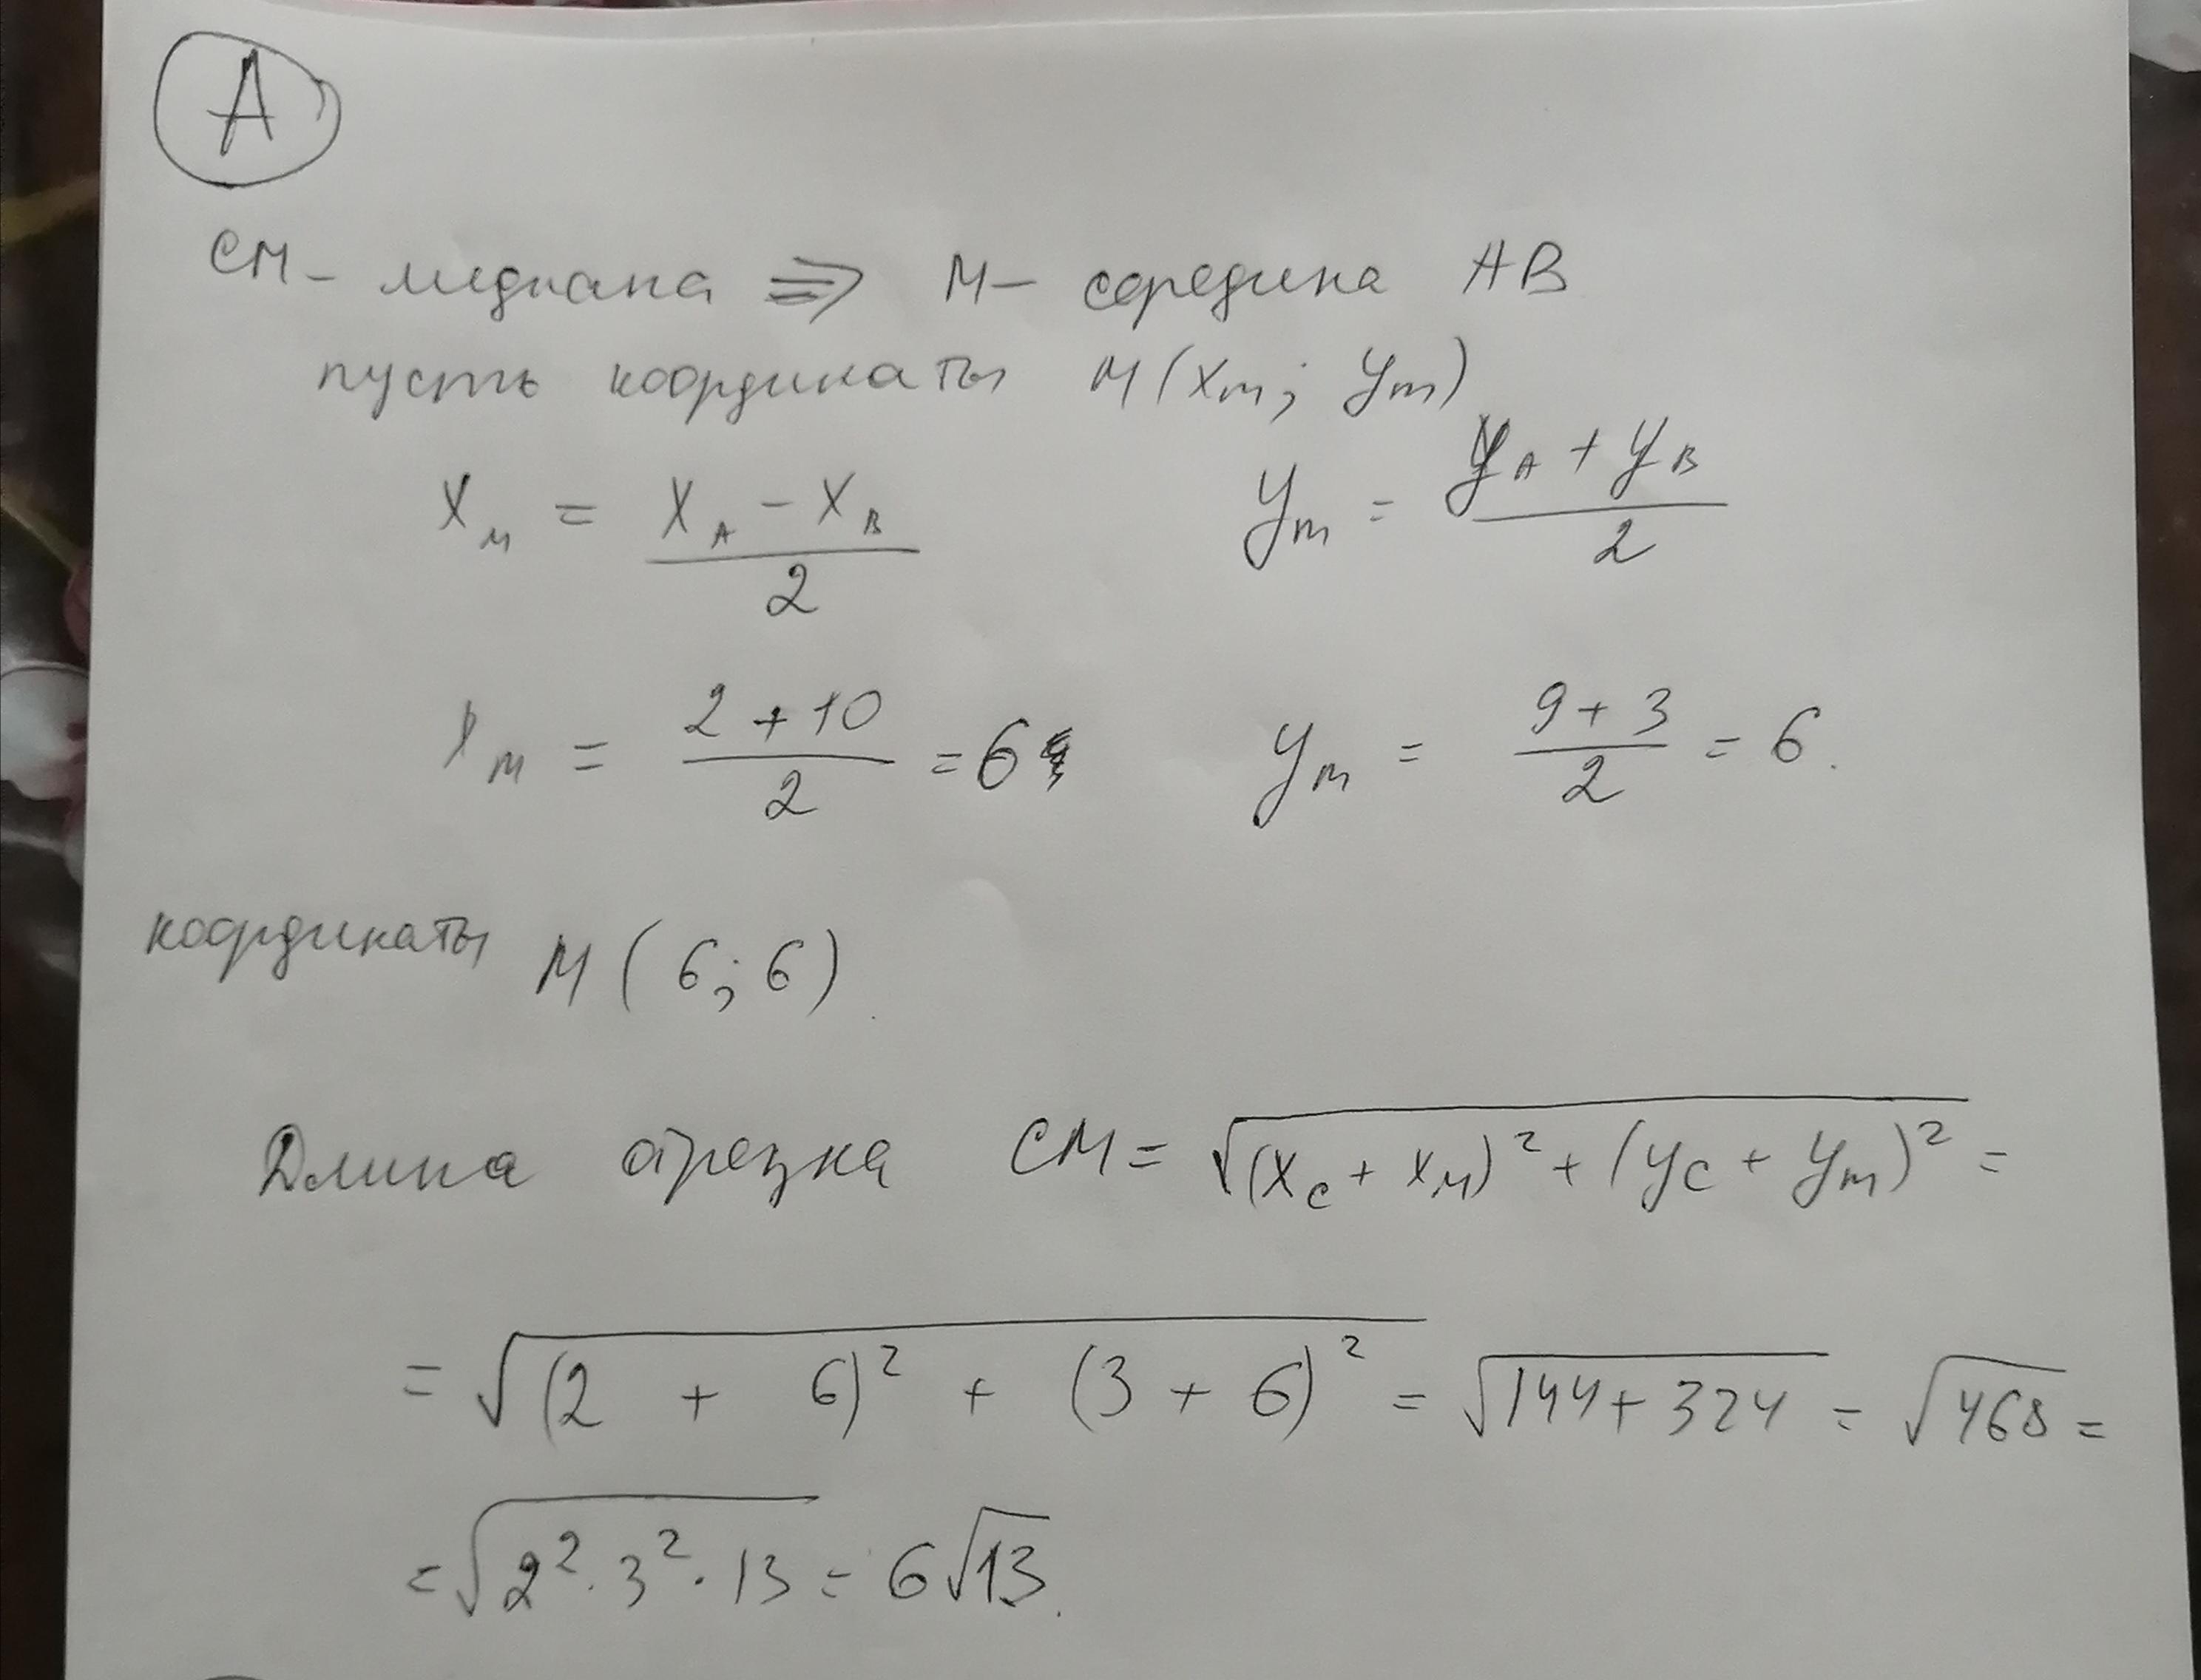 А
СМ – медиана ⇒ М – середина АВ
пусть координаты М(xm; ym)
xм = (xA − xB)/2   ym = (yA + yB)/2
xм = (2 + 10)/2 = 6   ym = (9 + 3)/2 = 6.
координаты М(6; 6)
Длина отрезка СМ = √((xc + xм)² + (yc + ym)²) =
= √((2 + 6)² + (3 + 6)²) = √(144 + 324) = √468 =
= √(2² · 3² · 13) = 6√13.